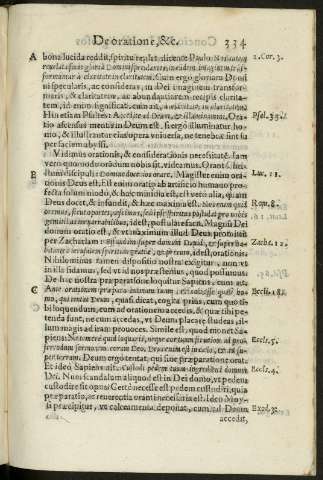 De oratione, &c.
334
A bona lucida reddit, spiritu replet dicente Paulo. Nos autem
2. Cor. 3.
revelata facie gloriam Domini speculantes, in eandem imaginem trans-
formamur à claritate in claritatem. Cum ergo gloriam Domi
ni speculatis, ac consideras, in Dei imaginem transfor-
maris, & claritatem, ac abundantiorem recipis clarita-
tem, id enim significat, cum ait, à claritate in claritatem.
Hic etiam Psaltes: Accedite ad Deum, & illuminamini. Ora-
Psal. 33.
tio ascensus mentis in Deum est. Si ergò illuminatur ho-
mo, & illustratur eius opera universa, ne tenebræ sint su
per faciem abyssi.
Vidimus orationis, & considerationis necessitatē. Iam
vero quomodo orādum nobis sit, videamus. Orant Chri-
B sti discipuli: Domine doce nos orare, Magister enim oratio-
Luc. 11.
nis Deus est. Est enim oratio ab artificio humano pro-
fecta
solum modo, & hæc minima est, est vero alia, quam
Deus docet, & infundit, & hæc maxima est. Nescimus quid
Rom. 8.
oremus, sicut oportet,
donum oratio est, & vt maximum illud Deus promittit
per Zachariam: Effundam super domum David, & super ha-
Zach. 12.
bitatores Ierusalem spiritum gratiæ, & precum, id est, orationis.
Nihilominus tamen dispositio nostra exigitur, non vt
in illa fidamus, sed vt id nos præstemus, quod possumus.
De hac nostra præparatione loquitur Sapiens, cum ait:
C Ante orationem præpara animam tuam, & noli esse quasi ho-
Eccls. 18.
mo, qui tentat Deum, quasi dicat, cogita prius, cum quo ti-
bi loquendum, cum ad orationem accedis, & quæ tibi pe-
tenda sunt, ne cum accedas, vt Deum places, & studeas, il-
lum magis ad iram provoces. Simile est, quod monet Sa-
piens: Ne temerè quid loquaris, neque cor tuum sit velox ad pro-
Eccls. 5.
ferendum sermonem coram Deo, Deus enim est in cælo, & tu su-
per terram. Deum ergo tentat, qui sine præparatione orat.
Et ideo Sapiens ait. Custodi pedem tuum ingrediens domum
Eccls. 4.
Dei. Num scandalum aliquod est in Dei domo, vt pedem
custodire sit opus? Certè necesse est pedem custodiri, quia
præparatio, ac reverentia oranti necessaria est. Ideo Moy-
si præcipitur, vt calceamenta deponat, cum ad Deum
Exod. 3.
accedit,